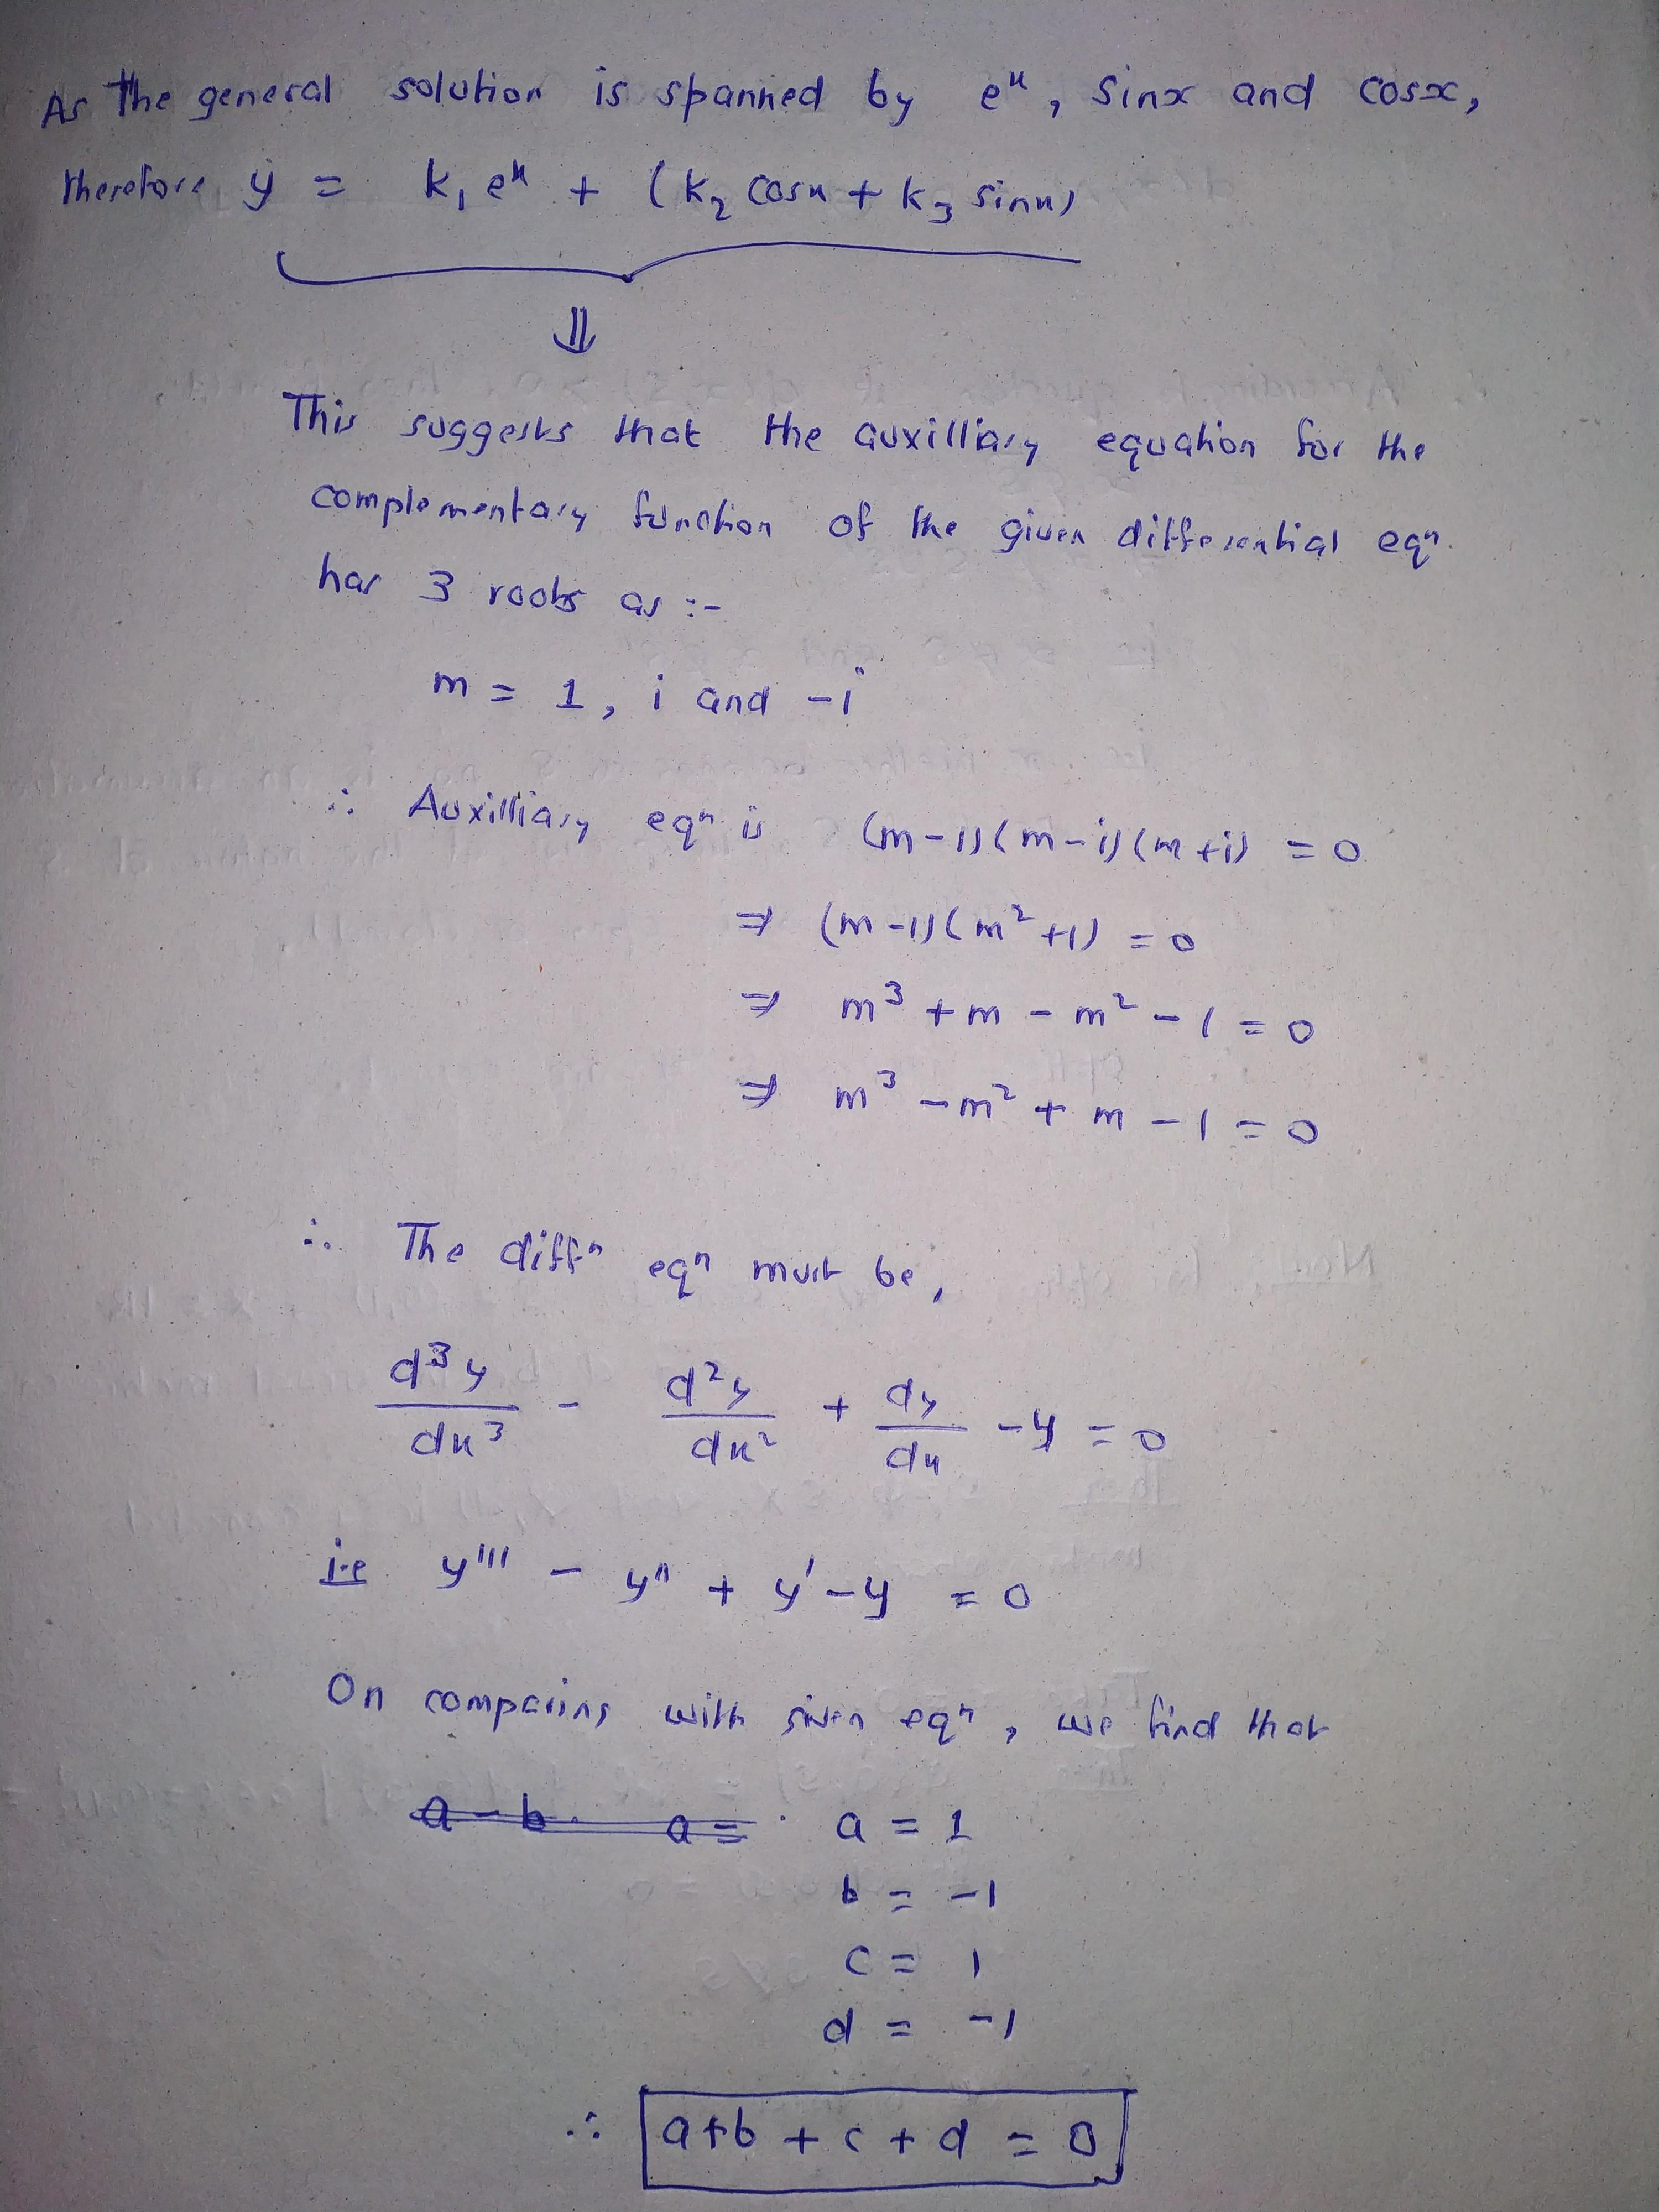 As the general solution is spanned by e^x, sinx and cosx,
therefore y = k₁ e^x + (k₂ cosx + k₃ sinx)
⇓
This suggests that the auxilliary equation for the
complementary function of the given differential eqⁿ.
has 3 roots as :-
m = 1, i and -i
∴ Auxilliary eqⁿ is (m-1)(m-i)(m+i) = 0
⇒ (m-1)(m²+1) = 0
⇒ m³ + m - m² - 1 = 0
⇒ m³ - m² + m - 1 = 0
∴ The diffⁿ eqⁿ must be,
d³y/dx³ - d²y/dx² + dy/dx - y = 0
i.e y''' - y'' + y' - y = 0
On comparing with given eqⁿ, we find that
a - b a = a = 1
b = -1
c = 1
d = -1
∴ a+b + c + d = 0